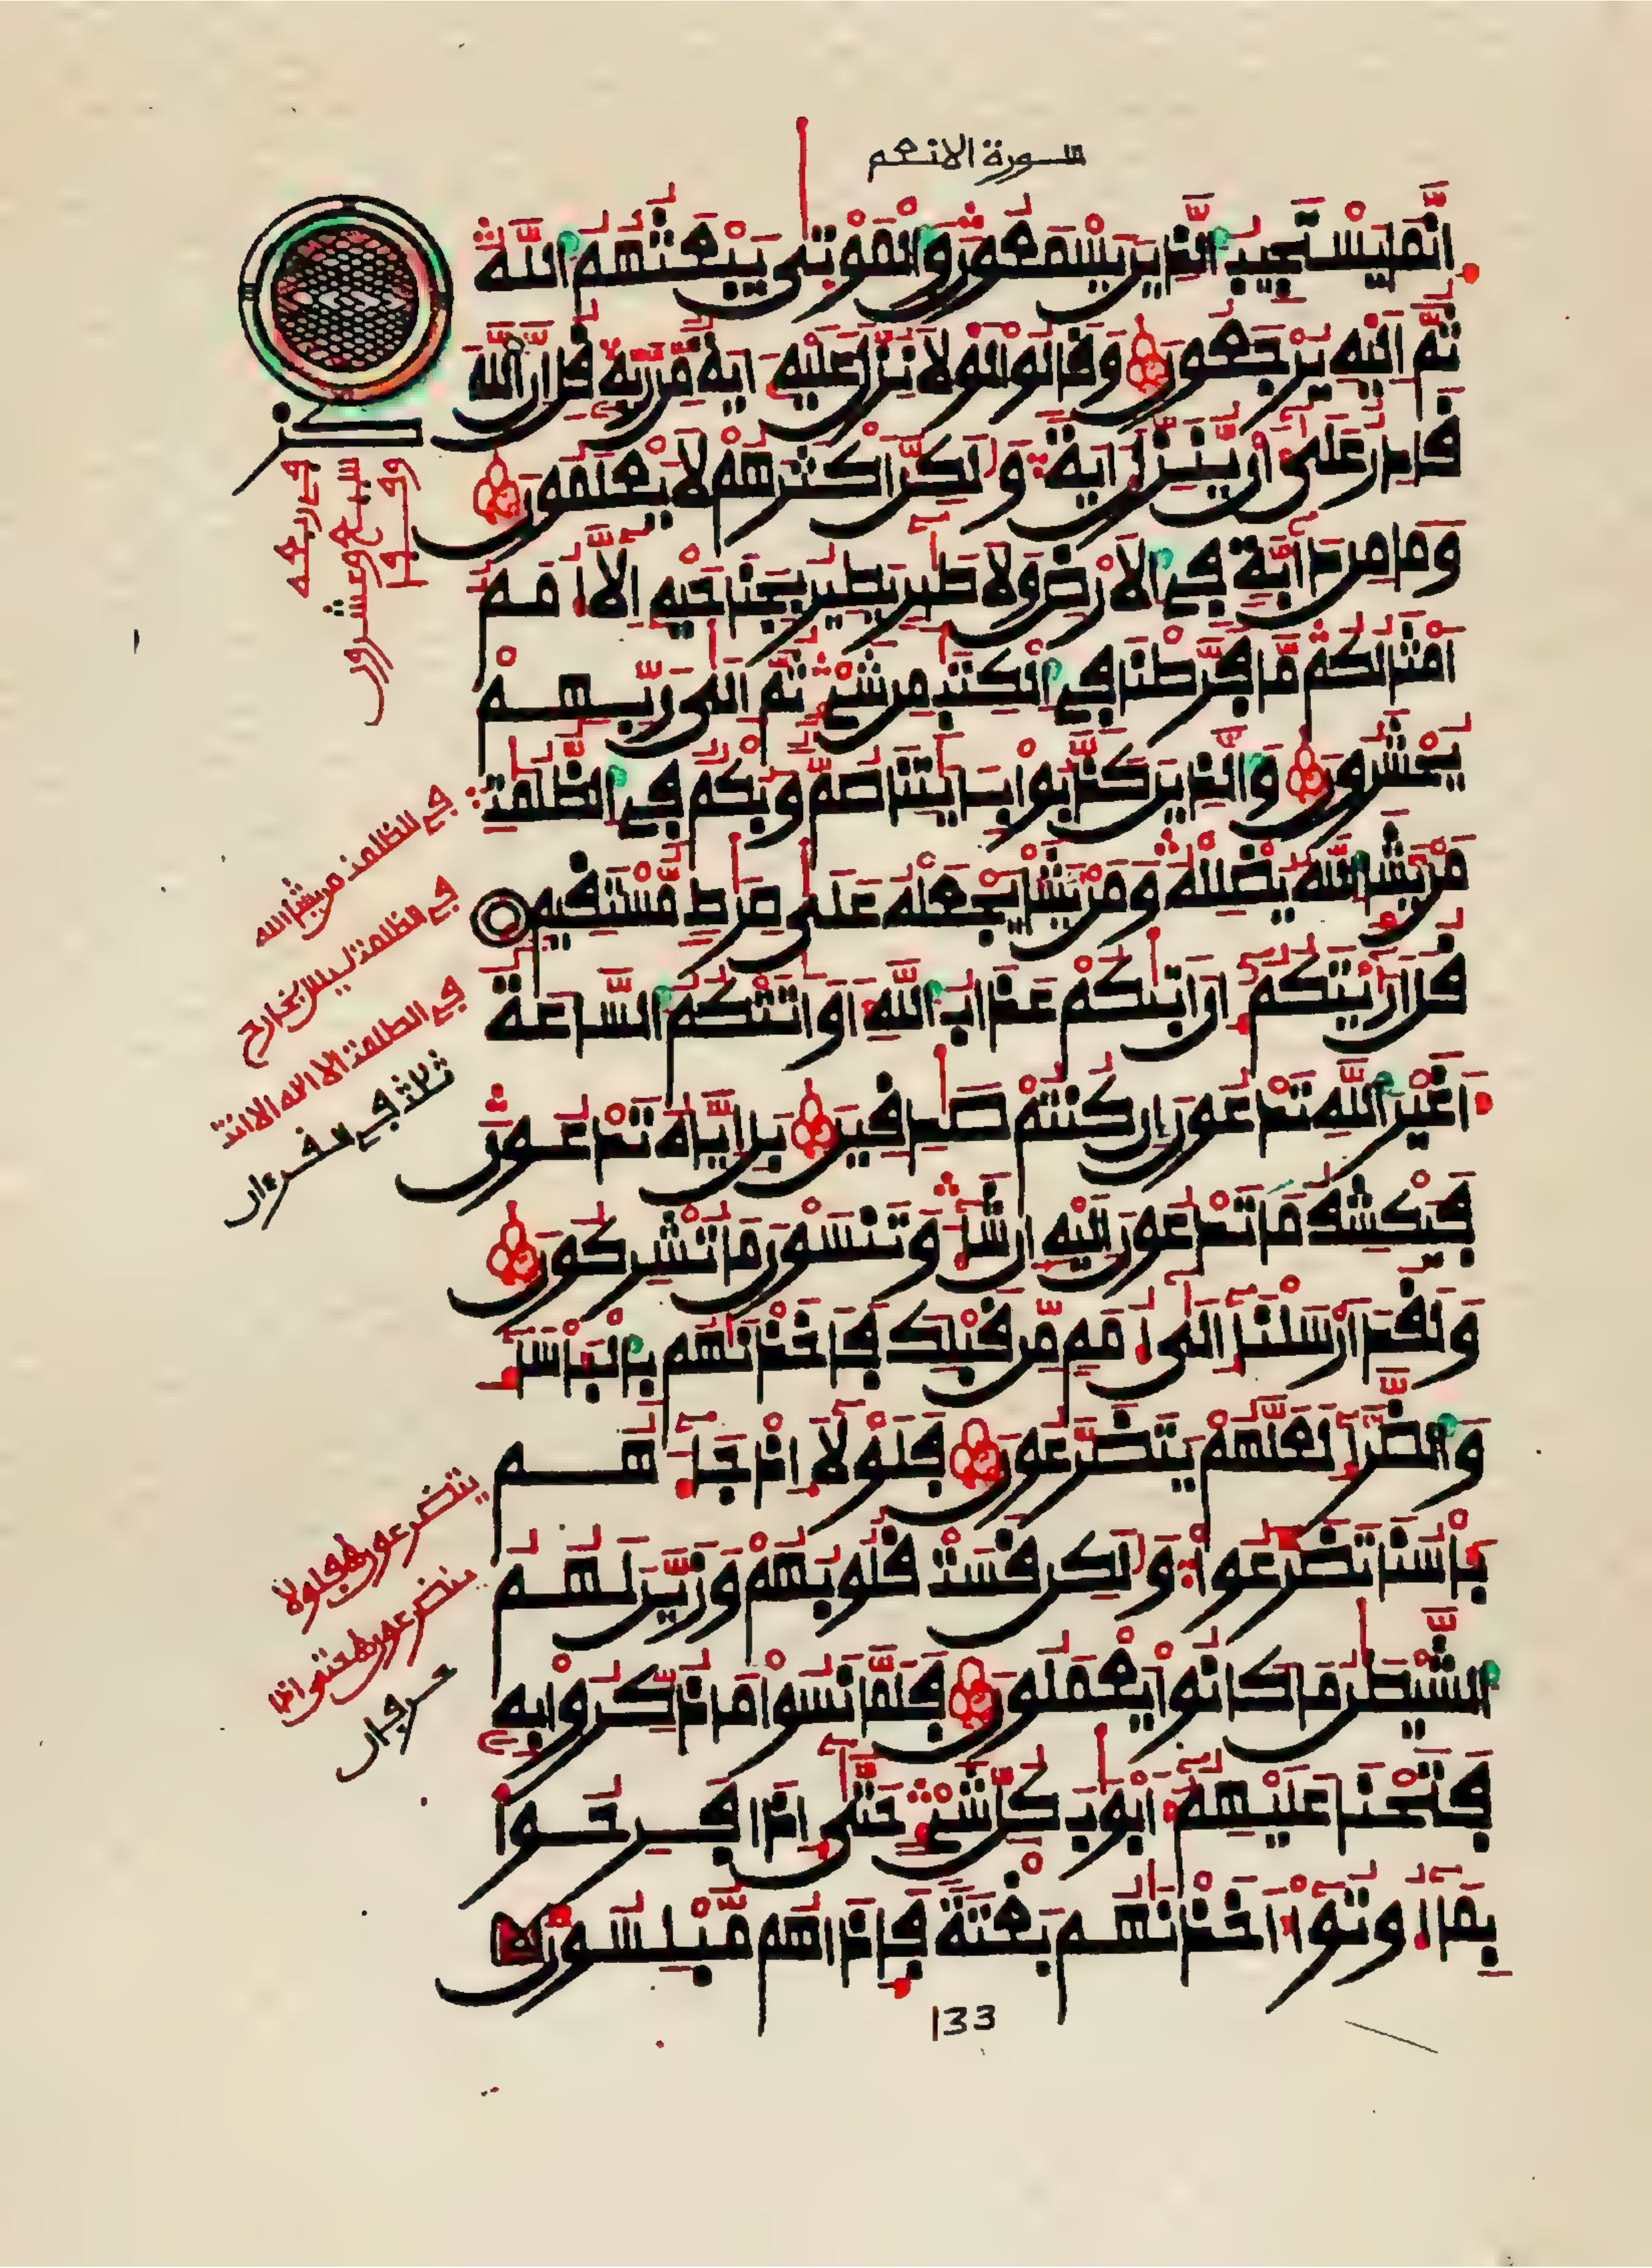 سورة الانعم
انما يستجيب الذين يسمعون والموتى يبعثهم الله
ثم اليه يرجعون وقالوا لولا نزل عليه ءاية من ربه قل ان الله
قادر على ان ينزل ءاية ولكن اكثرهم لا يعلمون
وما من دابة في الارض ولا طير يطير بجناحيه الا امم
امثالكم ما فرطنا في الكتب من شيء ثم الى ربهم
يحشرون والذين كذبوا بايتنا صم وبكم في الظلمت
من يشا الله يضلله ومن يشا يجعله على صرط مستقيم
قل اريتكم ان اتىكم عذاب الله او اتتكم الساعة
اغير الله تدعون ان كنتم صدقين بل اياه تدعون
فيكشف ما تدعون اليه ان شا وتنسون ما تشركون
ولقد ارسلنا الى امم من قبلك فاخذنهم بالباسا
والضرا لعلهم يتضرعون فلولا اذ جا هم
باسنا تضرعوا ولكن قست قلوبهم وزين لهم
الشيطن ما كانوا يعملون فلما نسوا ما ذكروا به
فتحنا عليهم ابوب كل شيء حتى اذا فرحوا
بما اوتوا اخذنهم بغتة فاذا هم مبلسون
133
في الظلمت من يشا الله
في الظلمت ليس بخارج
في الظلمت الا اله الا انت
ثلاث في القرءان
يتضرعون فلولا
يتضرعون حتى اذا
حرفان